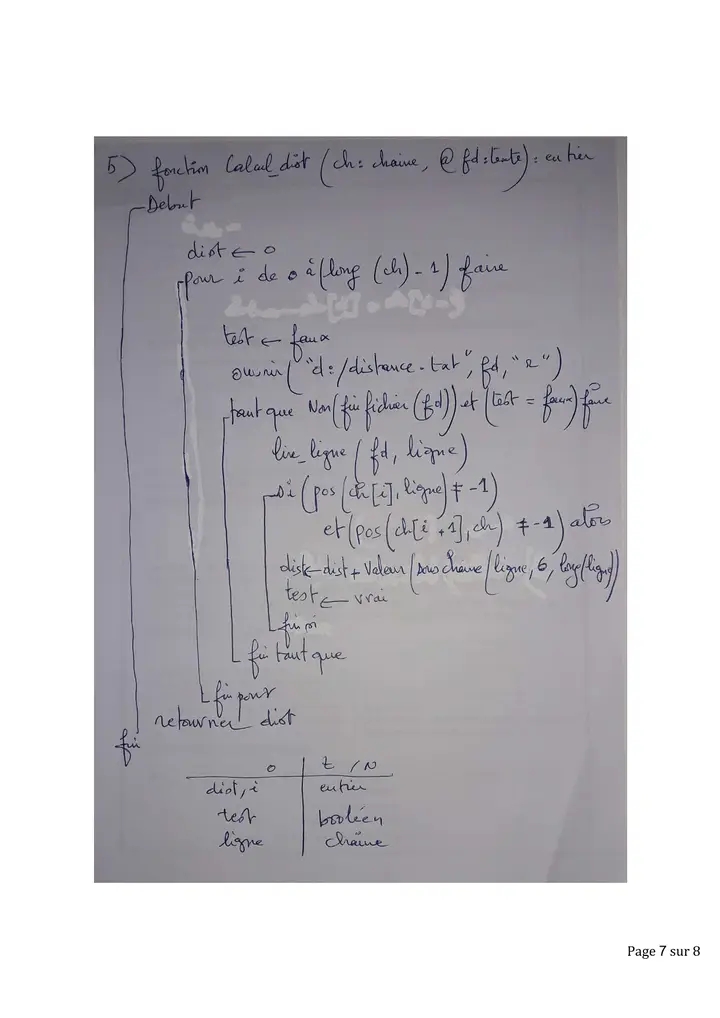 5) fonction Calcul_dist (ch : chaine, @ fd : texte) : entier
Debut
dist ← 0
pour i de 0 à (long (ch) - 1) faire
test ← faux
ouvrir ("d:/distance.txt", fd, "r")
tant que Non (fin fichier (fd)) et (test = faux) faire
lire_ligne (fd, ligne)
si (pos (ch[i], ligne) ≠ -1)
et (pos (ch[i +1], ch) ≠ -1) alors
dist ← dist + Valeur (sous chaine (ligne, 6, long(ligne))
test ← vrai
fin si
fin tant que
fin pour
retourner dist
fin
O | T / N
dist, i | entier
test | booléen
ligne | chaîne
Page 7 sur 8